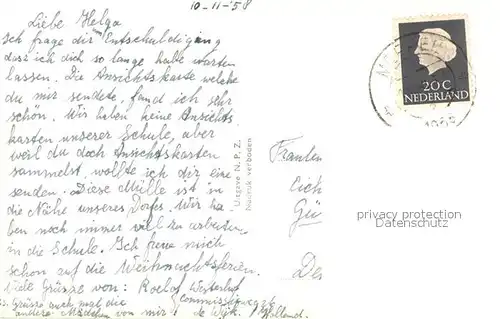 10-11-'58
Liebe Helga
Ich frage dir Entschuldigung
dass ich dich so lange habe warten
lassen. Die Ansichtskarte welche
du mir sendete, fand ich sehr
schön. Wir haben keine Ansichts
karten unserer Schule, aber
weil du doch Ansichtskarten
sammelst, wollte ich dir eine
senden. Diese Mülle ist in
die Nähe unseres Dorfes. Wir ha
ben noch immer viel zu arbeiten
in die Schule. Ich freue mich
schon auf die Weihnachtsferien.
Viele Grüsse von: Roelof Westerhof
Grüsse auch mal die
andere Mädchen von mir!
Commissieweg
de Wijk. Holland.
Uitgave N.P.Z.
Nadruk verboden
20 C
NEDERLAND
Fräulein
Gü
privacy protection
Datenschutz